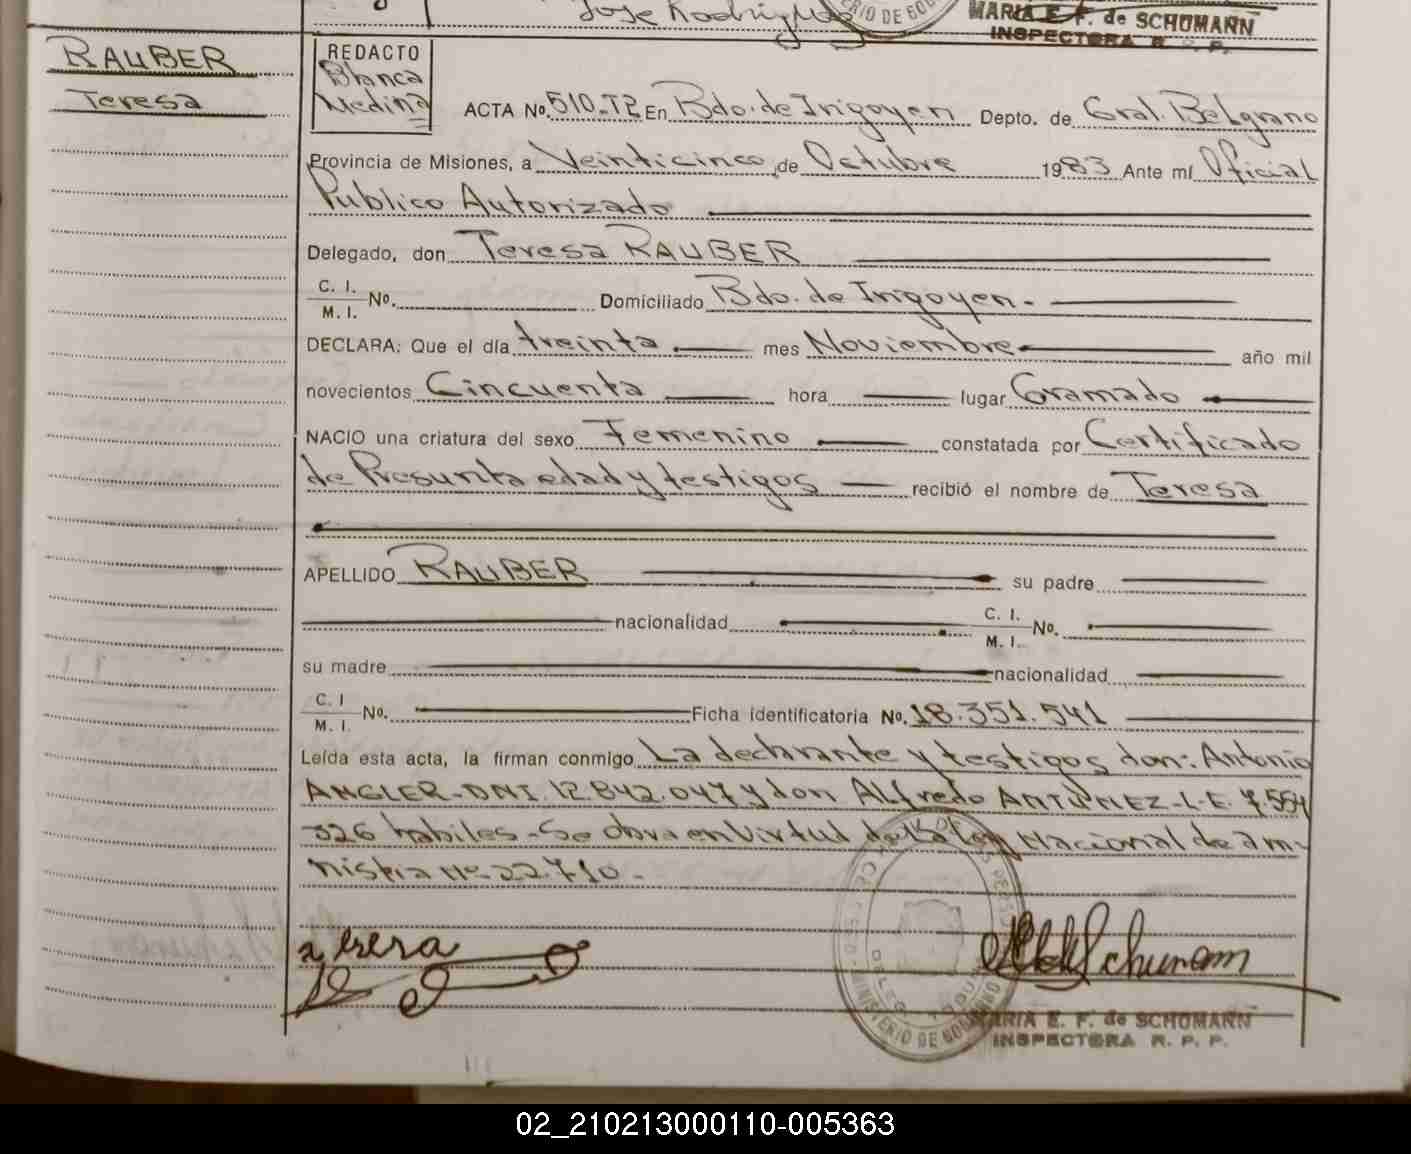 Jose Rodriguez
MARIA E. F. de SCHUMANN
INSPECTORA R. P. P.
RAUBER
Teresa
REDACTO
Blanca
Medina
ACTA No. 510-T2 En Bdo. de Irigoyen Depto. de Gral. Belgrano
Provincia de Misiones, a Veinticinco de Octubre 1983 Ante mí Oficial
Publico Autorizado
Delegado, don Teresa RAUBER
C. I.
M. I. No. Domiciliado Bdo. de Irigoyen.
DECLARA: Que el día treinta mes Noviembre año mil
novecientos Cincuenta hora lugar Gramado
NACIO una criatura del sexo Femenino constatada por Certificado
de Presunta edad y testigos recibió el nombre de Teresa
APELLIDO RAUBER su padre
nacionalidad C. I.
M. I. No.
su madre nacionalidad
C. I
M. I. No. Ficha identificatoria No. 18.351.541
Leída esta acta, la firman conmigo La declarante y testigos don: Antonio
ANGLER-DNI. 12.842.047 y don Alfredo ANTUNEZ-L.E. 7.554
326 habiles- Se obra en Virtud de la Ley Nacional de am-
nistia Nº 22.710.-
MINISTERIO DE GOBIERNO
Schumann
MARIA E. F. de SCHUMANN
INSPECTORA R. P. P.
02_210213000110-005363